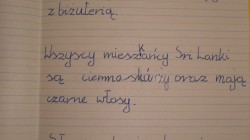 z biżuterią.
Wszyscy mieszkańcy Sri Lanki
są ciemnoskórzy oraz mają
czarne włosy.